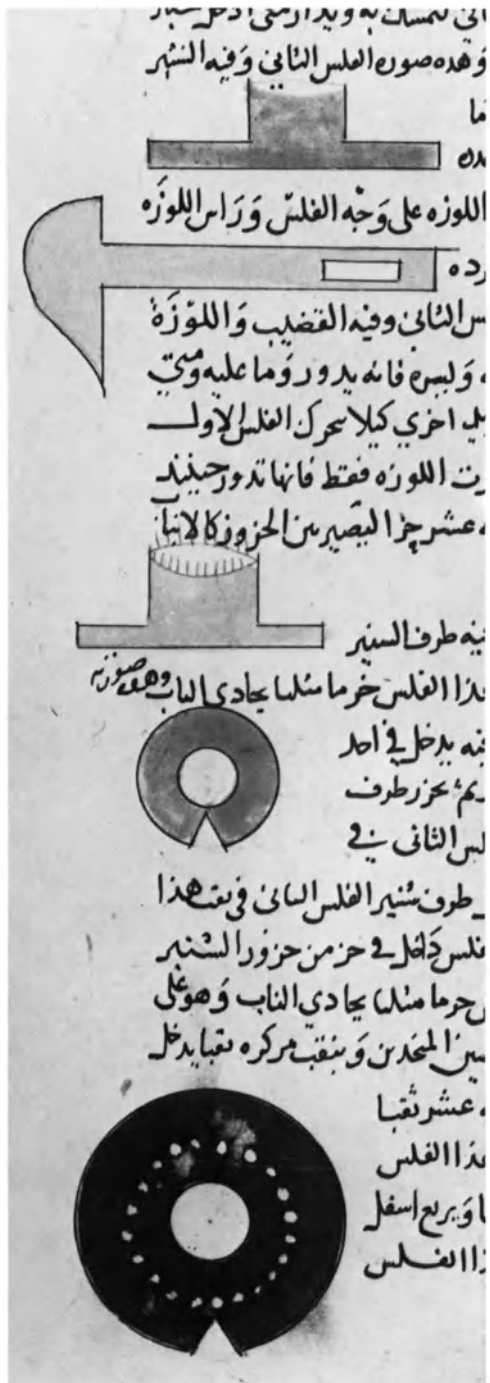 وهذه صورة الفلس الثاني وفيه الشنبر
ما
اللوزه على وجه الفلس وراس اللوزه
رده
س الثاني وفيه القضيب واللوزة
وليس فانه يدور وما عليه ومتى
يد اخري كيلا يتحرك الفلس الاول
رت اللوزه فقط فانها تدور حينئذ
عشر حزا ليصير بين الحزوز كالانياب
فيه طرف الشنبر
هذا الفلس خرما مثلثا يحادي الناب وهذه صورته
فيه يدخل في احد
يحز طرف
لس الثاني في
طرف شنبر الفلس الثاني في ثقب هذا
فلس داخل في حز من حزوز الشنبر
خرما مثلثا يحادي الناب وهو على
وينقب مركزه نقبا يدخل
عشر ثقبا
هذا الفلس
ا ويربع اسفل
ذا الفلس